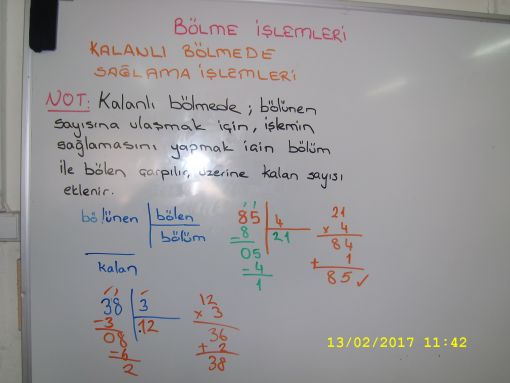 BÖLME İŞLEMLERİ
KALANLI BÖLMEDE
SAĞLAMA İŞLEMLERİ
NOT: Kalanlı bölmede; bölünen
sayısına ulaşmak için, işlemin
sağlamasını yapmak için bölüm
ile bölen çarpılır, üzerine kalan sayısı
eklenir.
bölünen bölen
bölüm
kalan
85 4
21
- 8
05
- 4
1
21
x 4
84
+ 1
85 ✓
38 3
12
- 3
08
- 6
2
12
x 3
36
+ 2
38
13/02/2017 11:42